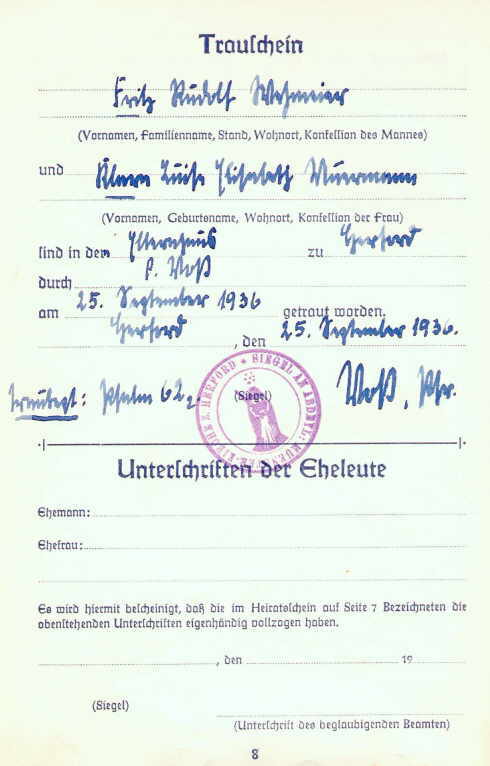 Trauschein
Fritz Rudolf Wehmeier
(Vornamen, Familienname, Stand, Wohnort, Konfession des Mannes)
und Klara Luise Elisabeth Muermann
(Vornamen, Geburtsname, Wohnort, Konfession der Frau)
sind in dem Elternhaus zu Herford
durch P. Voß
am 25. September 1936 getraut worden.
Herford, den 25. September 1936.
Trautext: Psalm 62,2. (Siegel) Voß, Pfr.
HERFORD * SIEGEL
Unterschriften der Eheleute
Ehemann:
Ehefrau:
Es wird hiermit bescheinigt, daß die im Heiratsschein auf Seite 7 Bezeichneten die
obenstehenden Unterschriften eigenhändig vollzogen haben.
, den 19
(Siegel)
(Unterschrift des beglaubigenden Beamten)
8